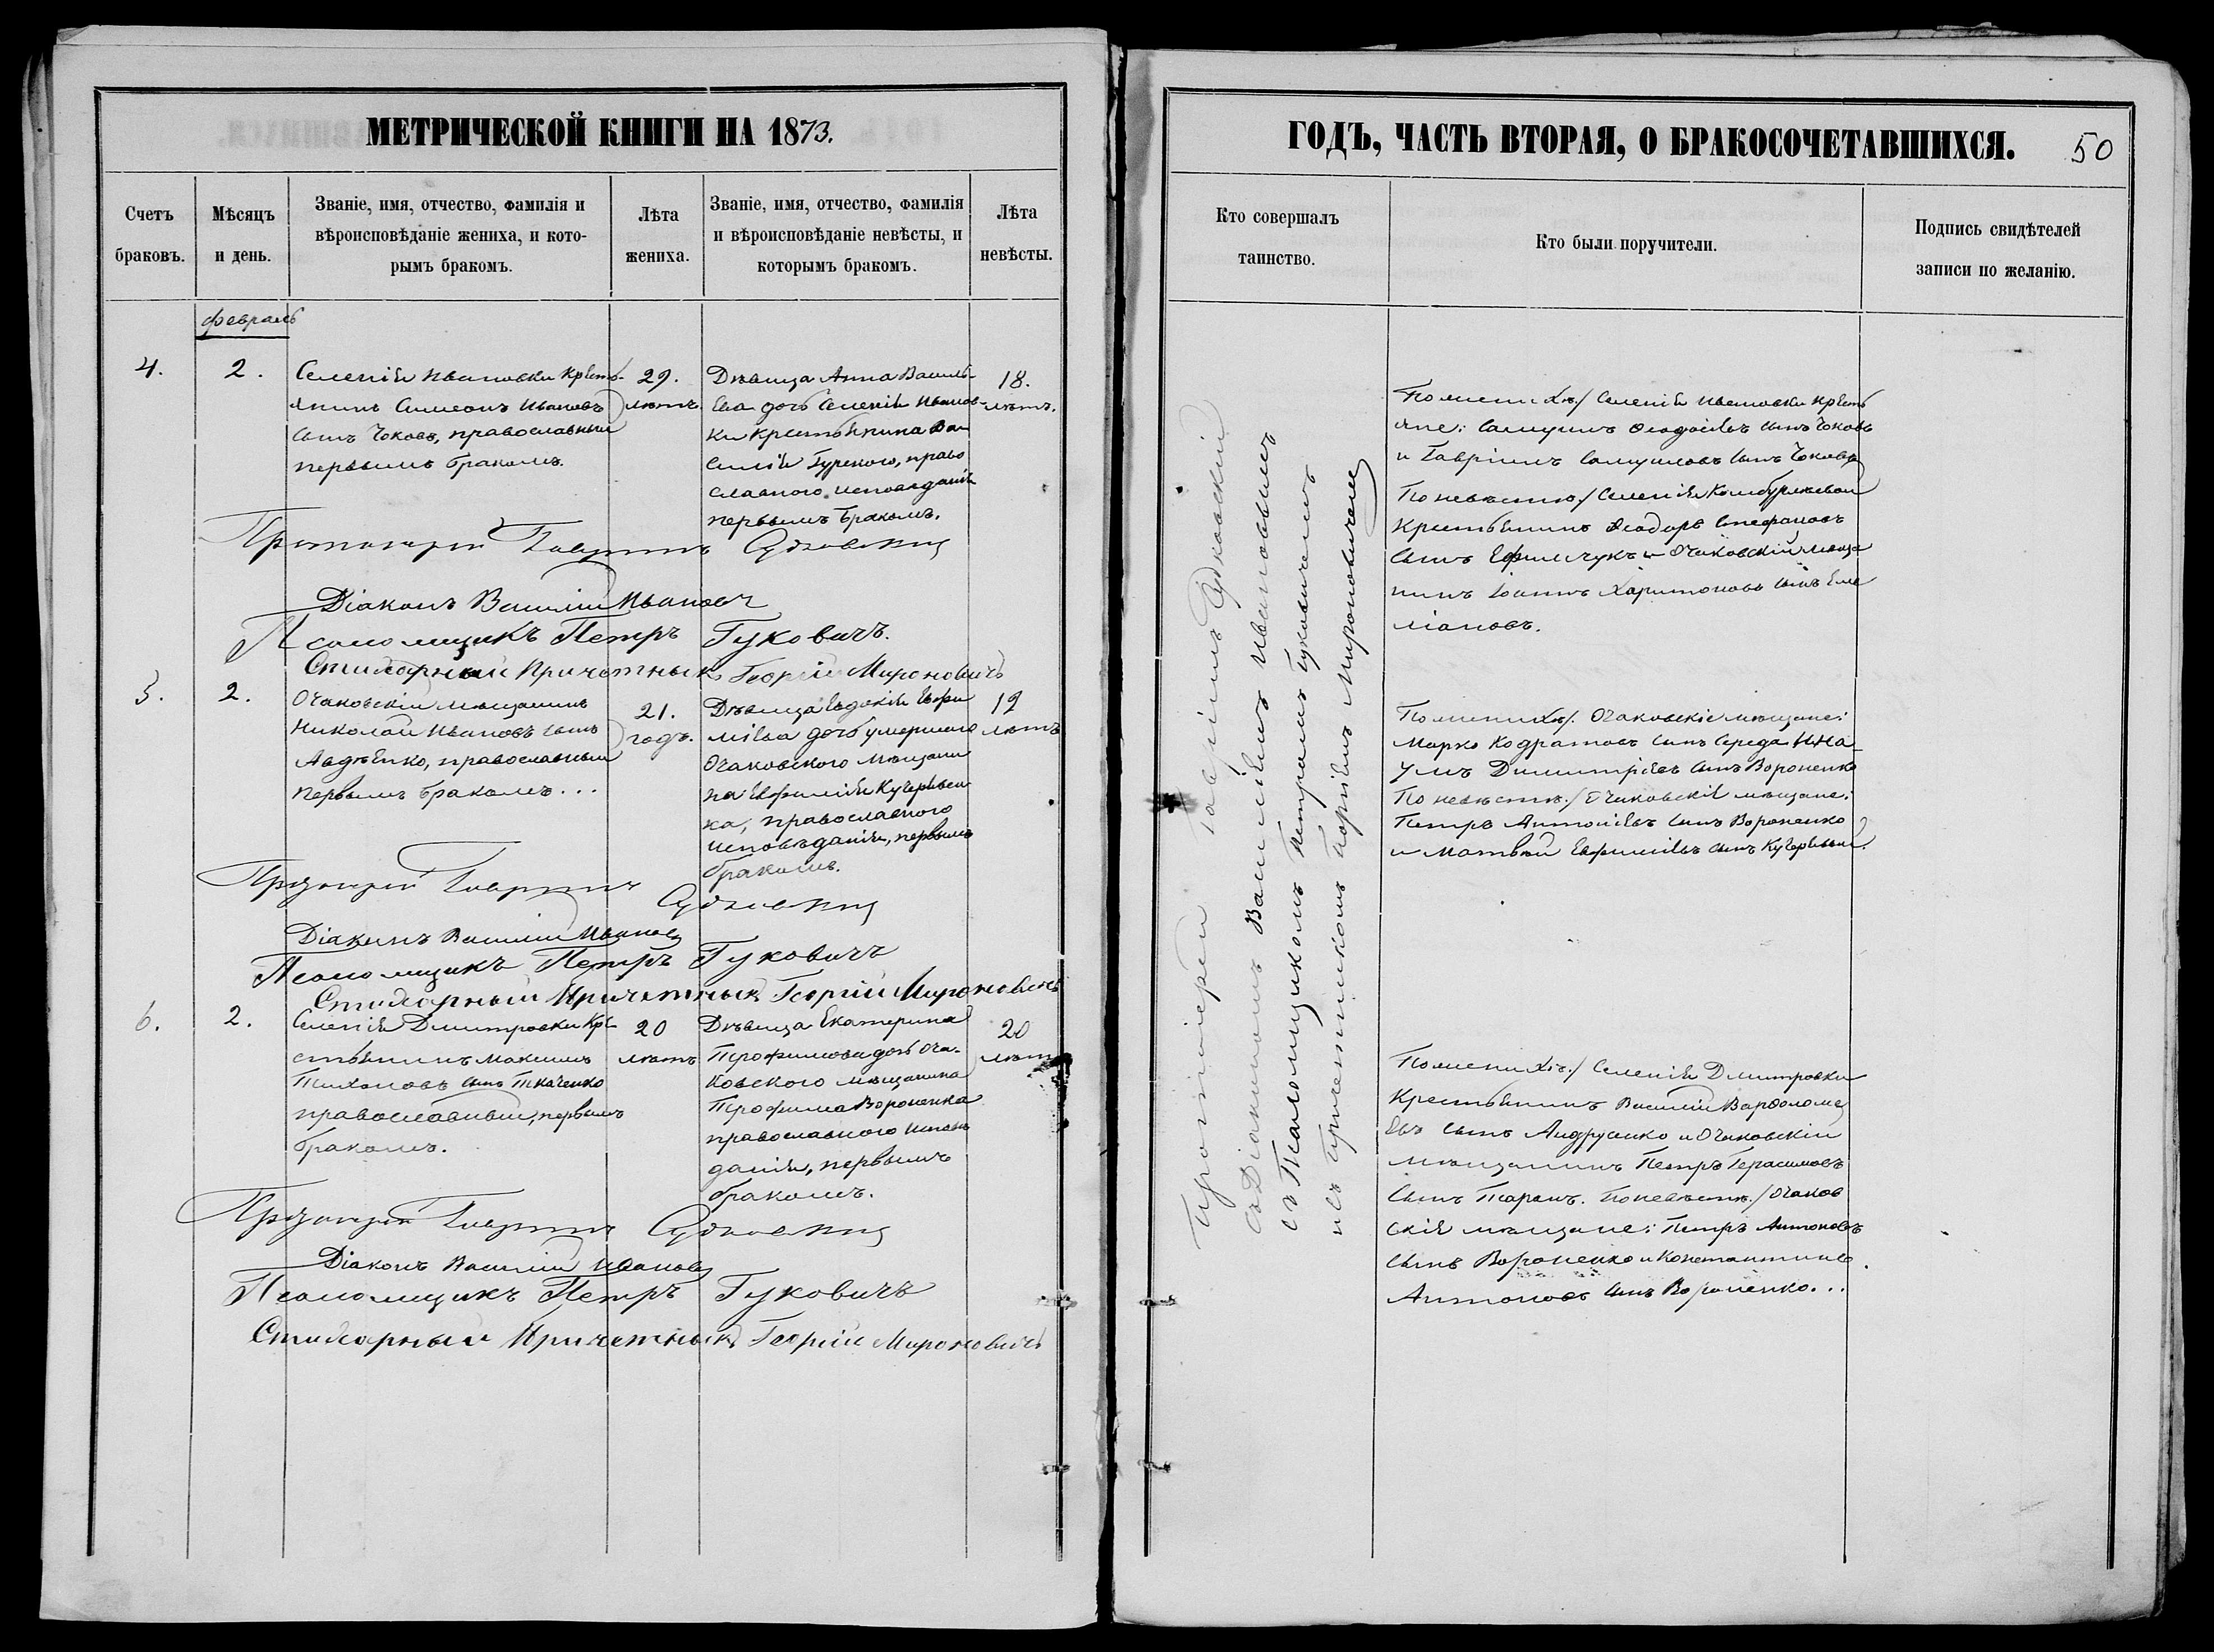 МЕТРИЧЕСКОЙ КНИГИ НА 1873.
Счетъ
браковъ.
Мѣсяцъ
и день.
Званіе, имя, отчество, фамилія и
вѣроисповѣданіе жениха, и кото-
рымъ бракомъ.
Лѣта
жениха.
Званіе, имя, отчество, фамилія
и вѣроисповѣданіе невѣсты, и
которымъ бракомъ.
Лѣта
невѣсты.
февраль
4.
2.
Селенія Ивановки Кресть-
янинъ Симеонъ Ивановъ
сынъ Чоковъ, православный
первымъ бракомъ.
29.
лѣтъ.
Дѣвица Анна Василь-
ева дочь Селенія Иванов-
ки крестьянина Ва-
силія Гурского, право
славного исповѣданія
первымъ бракомъ.
18.
лѣтъ.
Протоіерей Гавріилъ Судковскій
Діаконъ Василій Ивановъ
Псаломщикъ Петръ Гуковичъ.
Причетникъ Георгій Мироновичъ
5.
2.
Очаковскій мѣщанинъ
Николай Ивановъ сынъ
Авдѣенко, православный
первымъ бракомъ...
21.
годъ.
Дѣвица Евдокія Евфи
міева дочь умершаго
Очаковского мѣщани
на Евфимія Кучерявен
ка, православного
исповѣданія, первымъ
бракомъ.
19
лѣтъ
Протоіерей Гавріилъ
Судковскій
Діаконъ Василій Ивановъ
Псаломщикъ Петръ Гуковичъ
Причетникъ Георгій Мироновичъ
6.
2.
Селенія Дмитровки Кре
стьянинъ Максимъ
Тихоновъ сынъ Ткаченко
православный, первымъ
бракомъ.
20
лѣтъ
Дѣвица Екатерина
Трофимова дочь Оча-
ковского мѣщанина
Трофима Вороненка
православного исповѣ
данія, первымъ
бракомъ.
20
лѣтъ
Протоіерей Гавріилъ Судковскій
Діаконъ Василій Ивановъ
Псаломщикъ Петръ Гуковичъ
Причетникъ Георгій Мироновичъ
ГОДЪ, ЧАСТЬ ВТОРАЯ, О БРАКОСОЧЕТАВШИХСЯ.
50
Кто совершалъ
таинство.
Кто были поручители.
Подпись свидѣтелей
записи по желанію.
Протоіерей Гавріилъ Судковскій
съ Діакономъ Василіемъ Ивановымъ
съ Псаломщикомъ Петромъ Гуковичемъ
и съ Причетникомъ Георгіемъ Мироновичемъ
По женихѣ/ Селенія Ивановки кресть
яне: Самуилъ Ѳеодосіевъ сынъ Чоковъ
и Гавріилъ Самуиловъ сынъ Чоковъ
По невѣстѣ/ Селенія
Крестьянинъ Ѳеодоръ Стефановъ
сынъ Ефимчукъ и Очаковскій мѣща
нинъ Іоаннъ Харитоновъ сынъ Еме
ліановъ.
По женихѣ/: Очаковскіе мѣщане:
Марко Кодратовъ сынъ Середа и На-
умъ Димитріевъ сынъ Вороненко
По невѣстѣ:/ Очаковскіе мѣщане:
Петръ Антоніевъ сынъ Вороненко
и Матвѣй Евфиміевъ сынъ
По женихѣ:/ Селенія Дмитровки
Крестьянинъ Василій Варѳоломе
евъ сынъ Андрусенко и Очаковскій
мѣщанинъ Петръ Герасимовъ
сынъ Таранъ. По невѣстѣ:/ Очаков
скія мѣщане: Петръ Антоновъ
сынъ Вороненко и Константинъ
Антоновъ сынъ Вороненко...